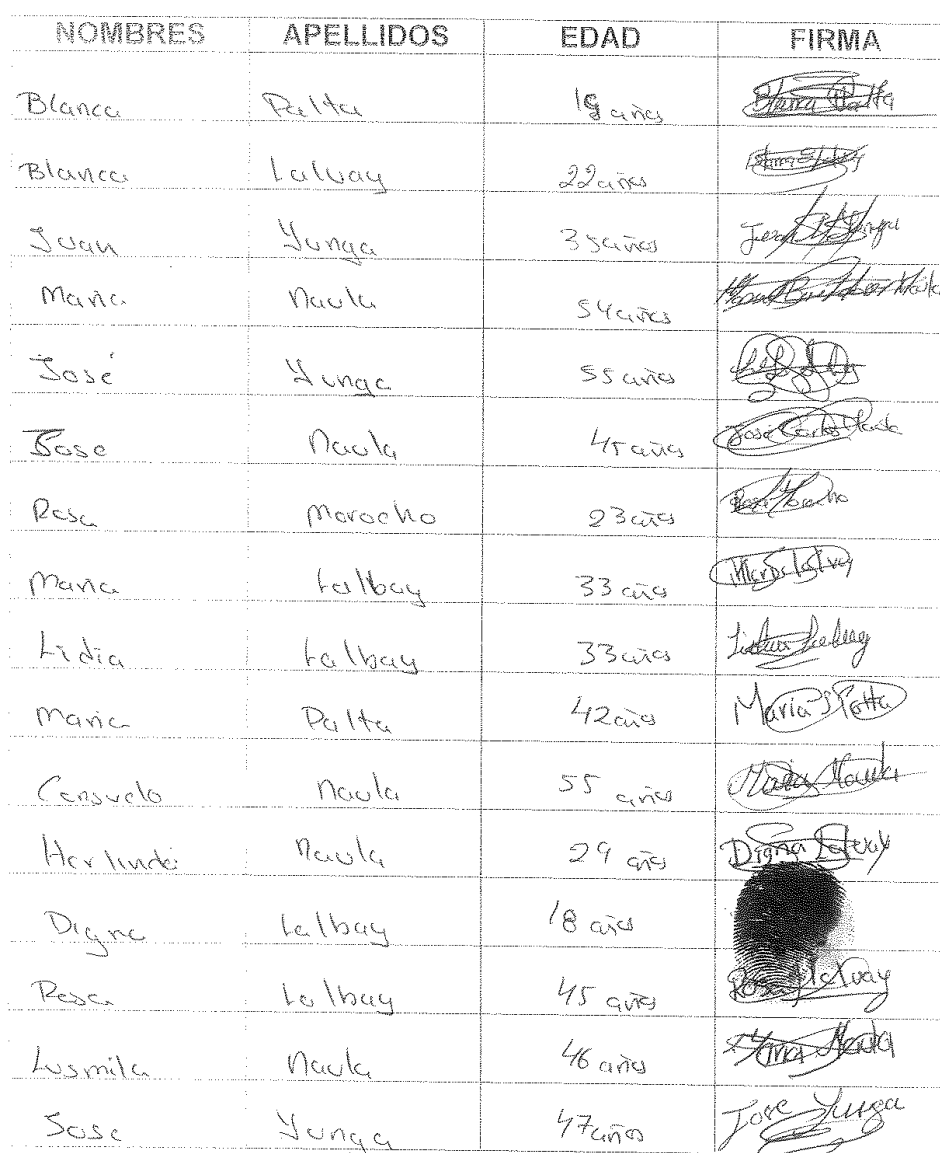 NOMBRES APELLIDOS EDAD FIRMA
Blanca Palta 19 años Blanca Palta
Blanca Lalvay 22 años
Juan Yunga 35 años Juan Yunga
Maria Naula 54 años Naula
José Yunga 55 años
Jose Naula 45 años José Carlos Naula
Rosa Morocho 23 años Rosa Morocho
Maria Lalbay 33 años Maria Lalvay
Lidia Lalbay 33 años
Maria Palta 42 años Maria Palta
Consuelo Naula 55 años Maria Naula
Herlinda Naula 29 años Digna Lalvay
Digna Lalbay 18 años
Rosa Lalbay 45 años Rosa Lalvay
Lusmila Naula 46 años Maria Naula
Jose Yunga 47 años Jose Yunga